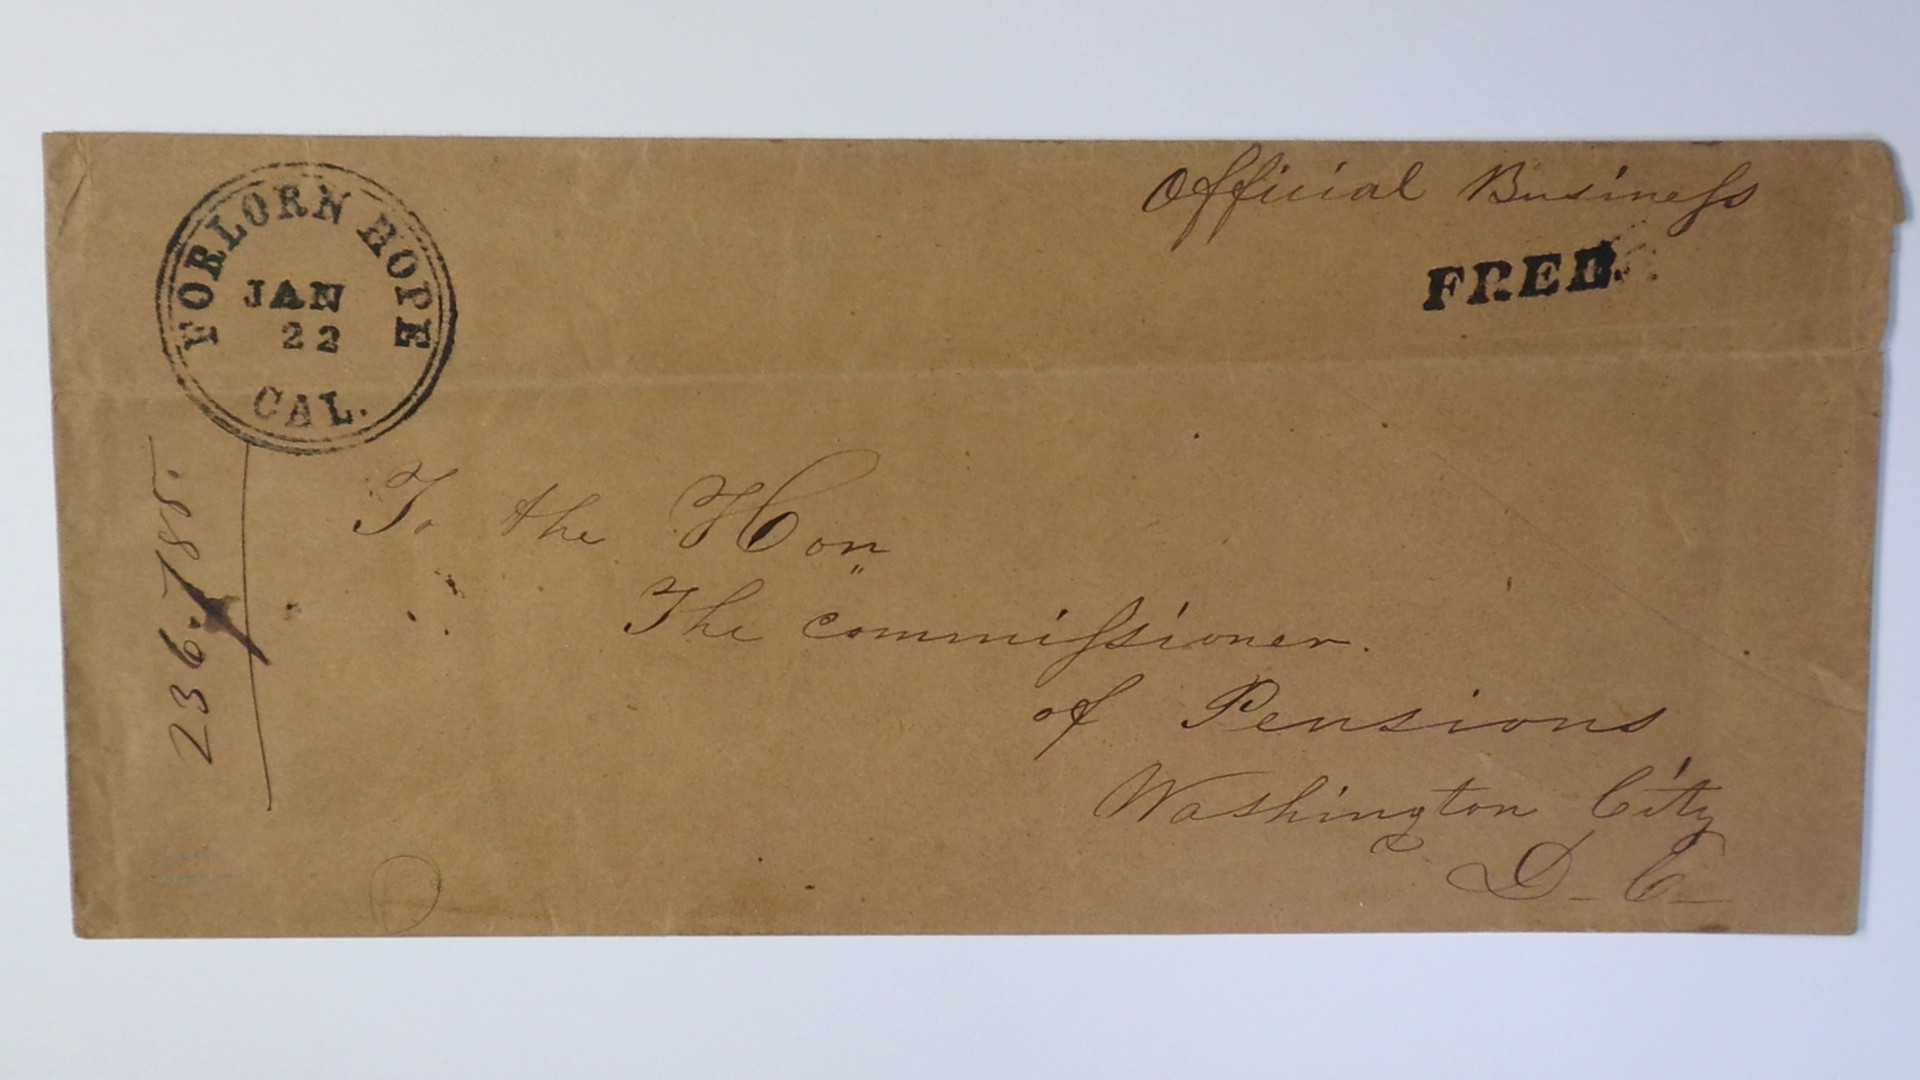 FORLORN HOPE
JAN
22
CAL.
Official Business
FREE
236.785.
To the Hon
The Commissioner.
of Pensions
Washington City
D. C.